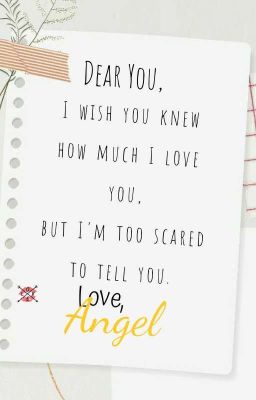 Dear You,
I wish you knew
how much I love
you,
but I'm too scared
to tell you.
Love,
Angel